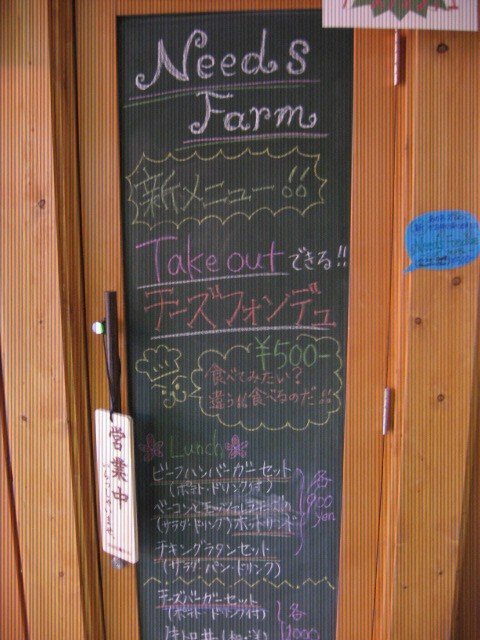 Needs
Farm
新メニュー!!
Take outできる!!
チーズフォンデュ
¥500-
食べてみたい?
違う!!食べるのだ!!
Lunch
ビーフハンバーガーセット
(ポテト・ドリンク付)
各
900
yen
(サラダ・ドリンク)ホットサンド
チキングラタンセット
(サラダ・パン・ドリンク)
チーズバーガーセット
(ポテト・ドリンク付)
各
1000
営業中
いらっしゃいませ。